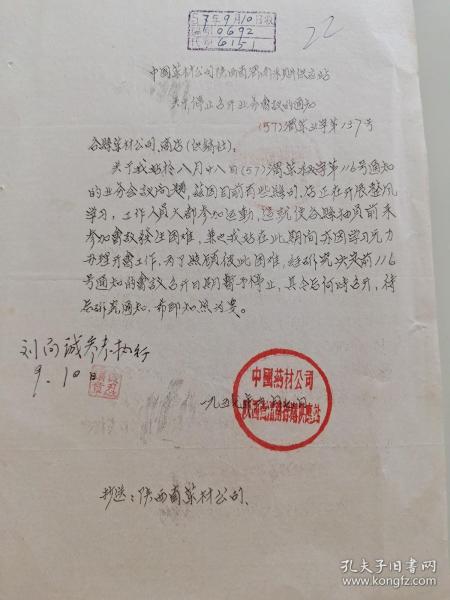 57年9月10日收
编号0692
代号6151
22
中国药材公司陕西省渭南采购供应站
关于停止召开业务会议的通知
(57)渭药业字第137号
各县药材公司、商店(供销社):
关于我站于八月廿八日(57)渭药秘字第116号通知
的业务会议问题,兹因目前有些县司、店正在开展整风
学习,工作人员大部参加运动,这就使各县抽员前来
参加会议发生困难,兼之我站在此期间亦因学习无力
办理开会工作。为了照顾彼此困难,经研究决定前116
号通知的会议召开日期暂予停止,具会后何时召开,待
后研究通知。希即知照为要。
刘向诚参考执行
9.10日
中國药材公司
陕西省渭南採購供應站
一九五七年
抄送:陕西省药材公司、
孔夫子旧书网
www.kongfz.com